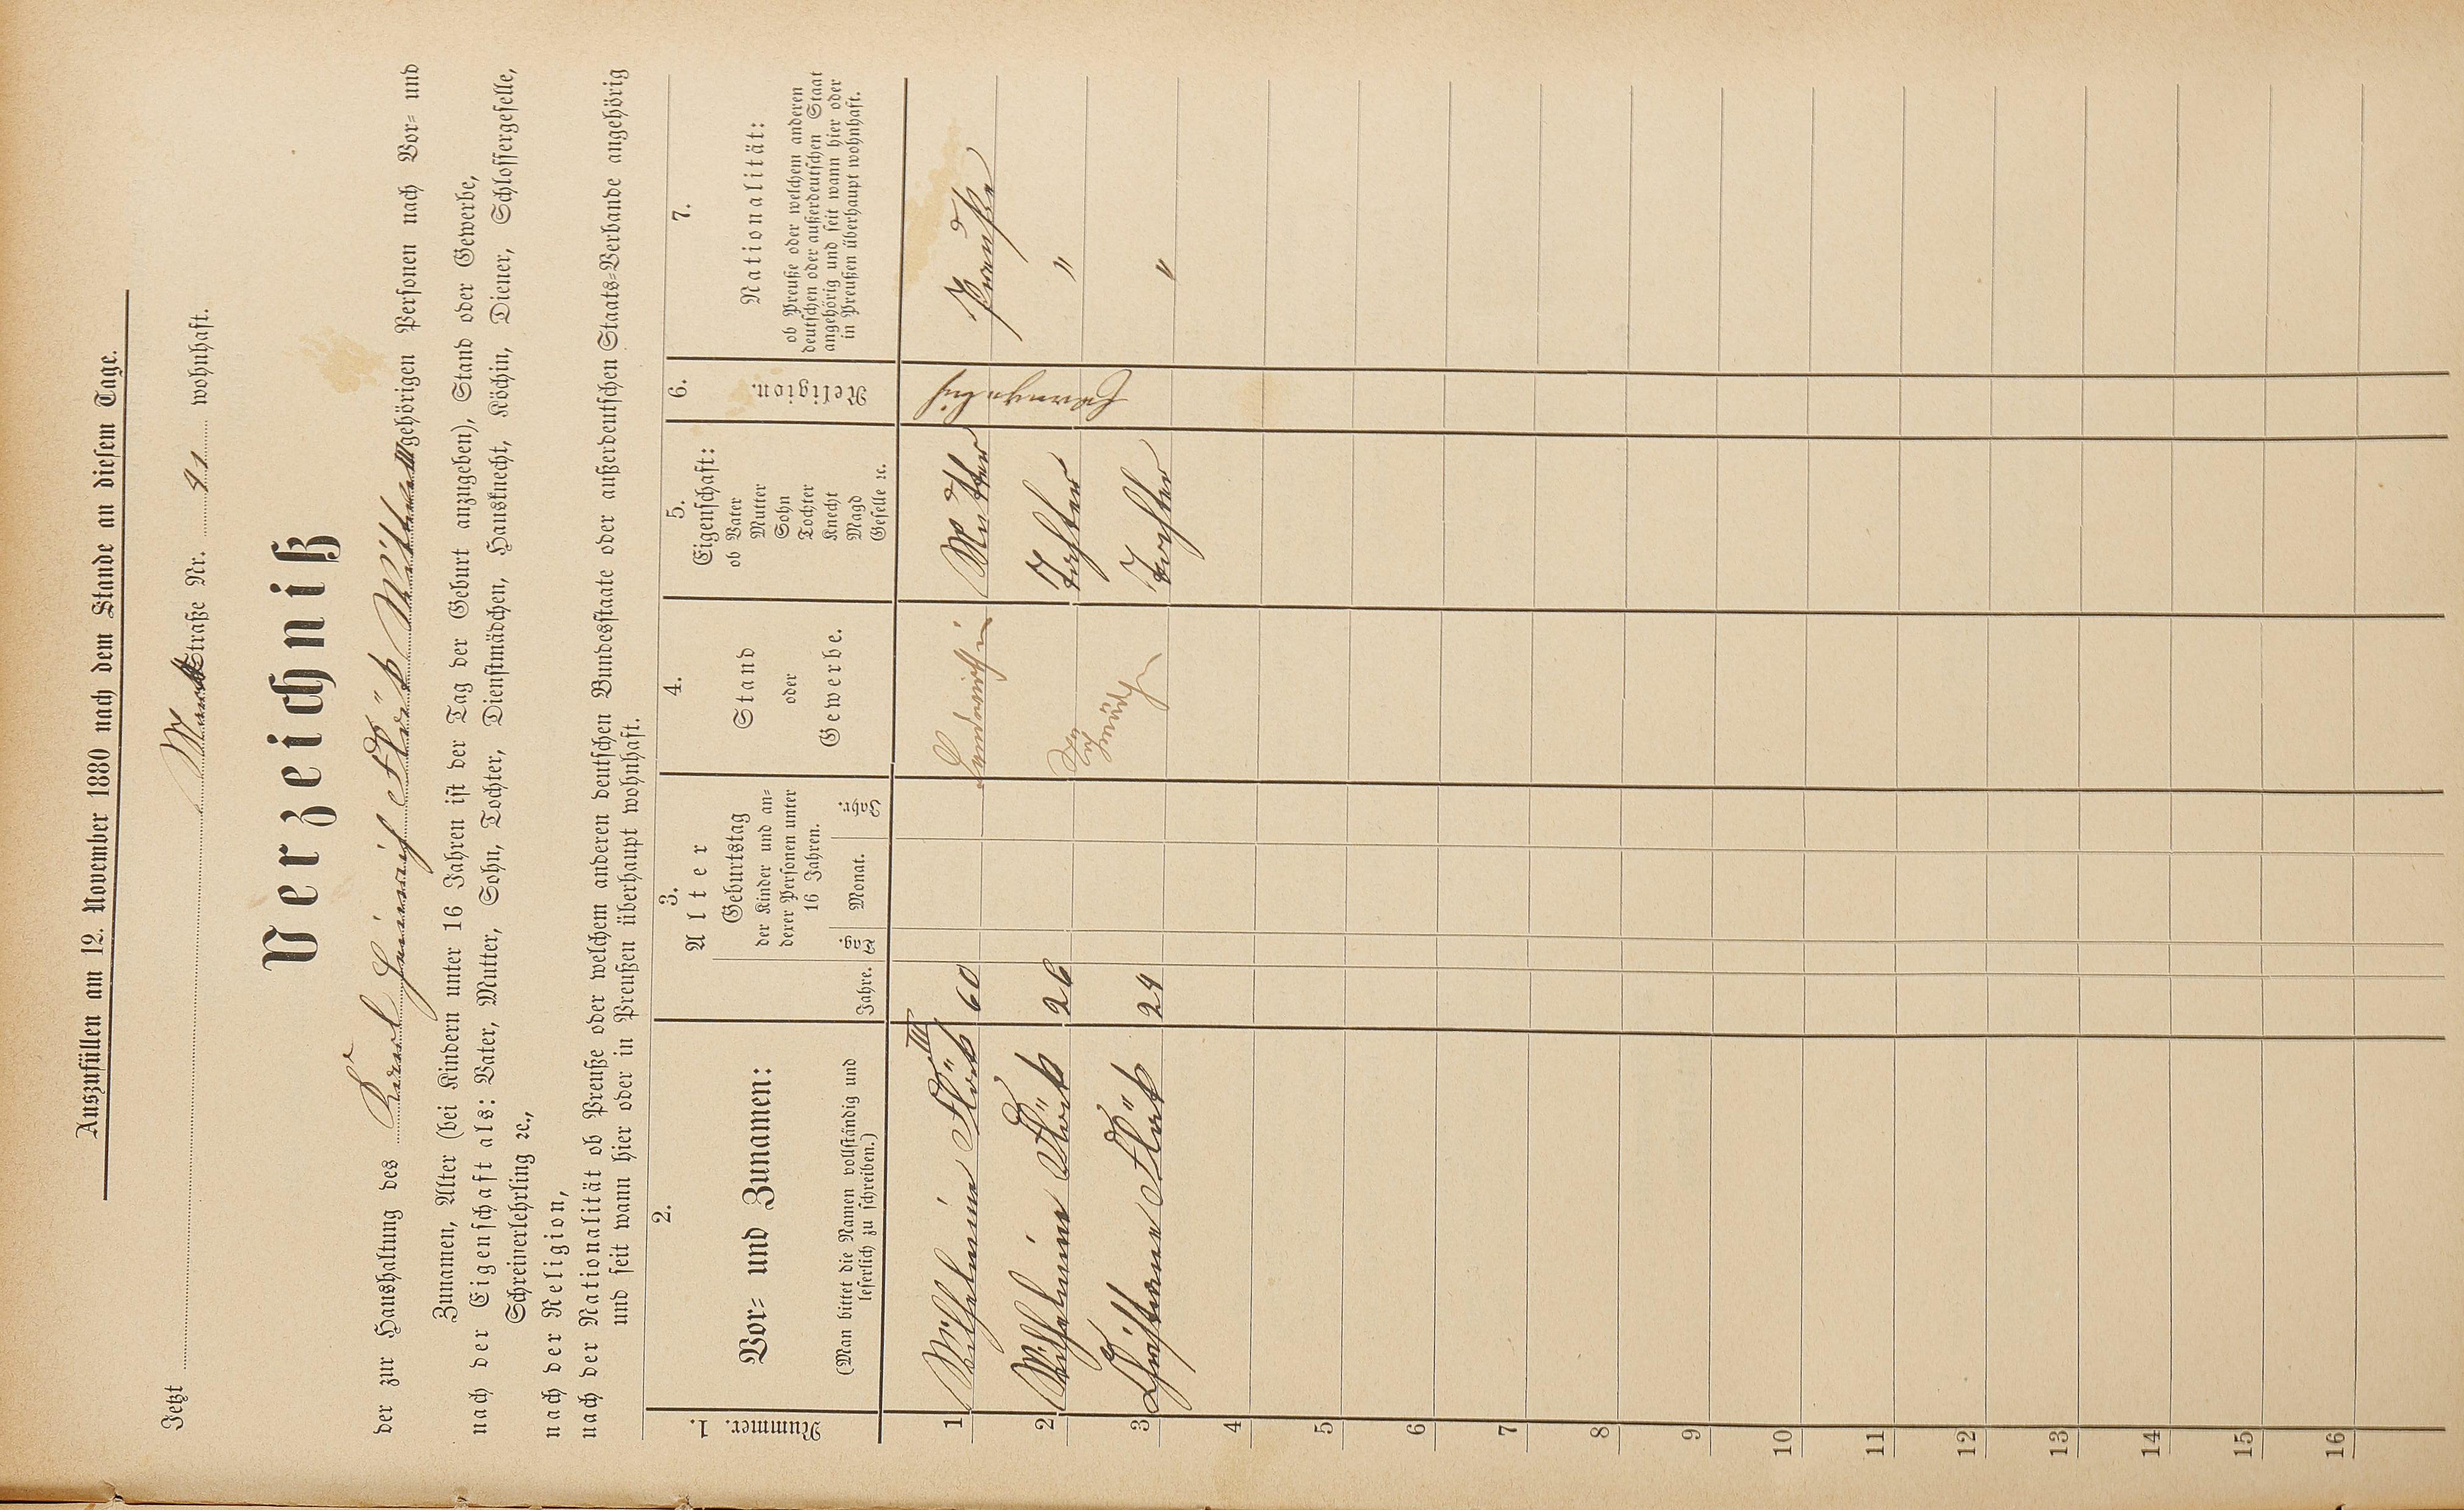 Auszufüllen am 12. November 1880 nach dem Stande an diesem Tage.
Jetzt Markt Straße Nr. 41 wohnhaft.
Verzeichniß
der zur Haushaltung des Karl Heinrich Flöß Wittwe gehörigen Personen nach Vor- und
Zunamen, Alter (bei Kindern unter 16 Jahren ist der Tag der Geburt anzugeben), Stand oder Gewerbe,
nach der Eigenschaft als: Vater, Mutter, Sohn, Tochter, Dienstmädchen, Hausknecht, Köchin, Diener, Schlossergeselle,
Schreinerlehrling ꝛc.,
nach der Religion,
nach der Nationalität ob Preuße oder welchem anderen deutschen Bundesstaate oder außerdeutschen Staats-Verbande angehörig
und seit wann hier oder in Preußen überhaupt wohnhaft.
1.
Nummer.
2.
Vor- und Zunamen:
(Man bittet die Namen vollständig und
leserlich zu schreiben.)
3.
Alter
Jahre.
Geburtstag
der Kinder und an-
derer Personen unter
16 Jahren.
Tag. Monat. Jahr.
4.
Stand
oder
Gewerbe.
5.
Eigenschaft:
ob Vater
Mutter
Sohn
Tochter
Knecht
Magd
Geselle ꝛc.
6.
Religion.
7.
Nationalität:
ob Preuße oder welchem anderen
deutschen oder außerdeutschen Staat
angehörig und seit wann hier oder
in Preußen überhaupt wohnhaft.
1 Wilhelmine Flöß 60 Landwirthin Mutter Evangelisch Preuße
2 Wilhelmine Flöß 26 Tochter "
3 Christiane Flöß 24 Tochter "
4
5
6
7
8
9
10
11
12
13
14
15
16